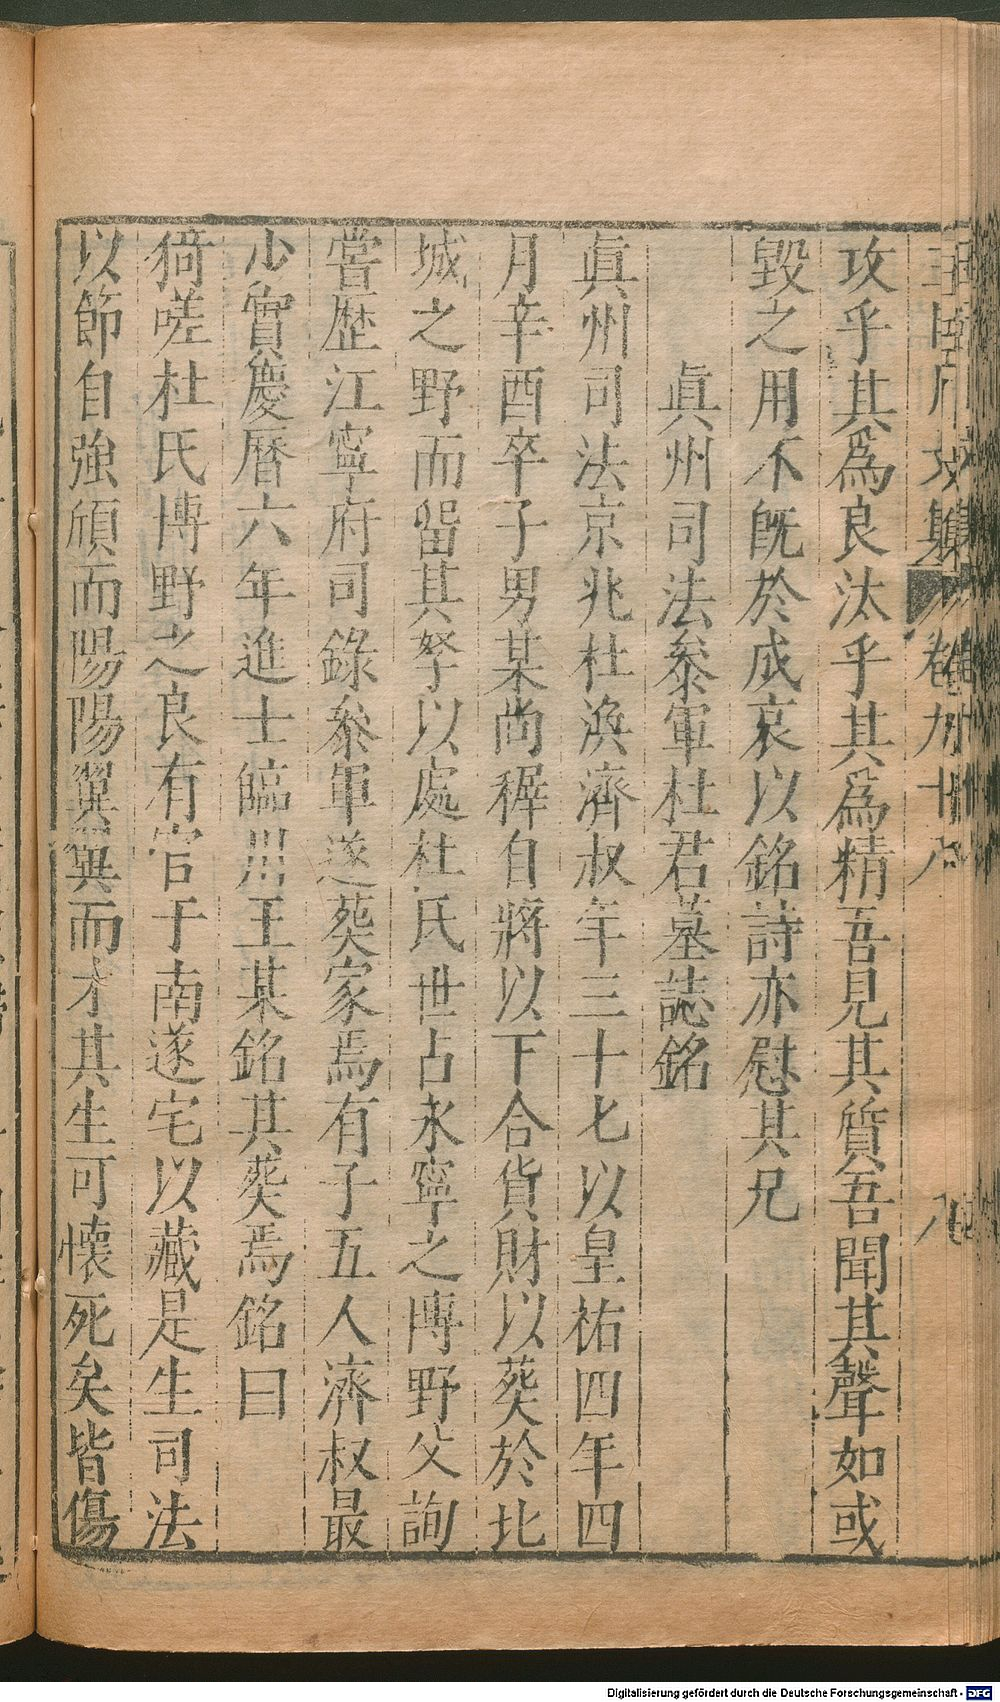 攻乎其爲良汰乎其爲精吾見其質吾聞其聲如或
毀之用不旣於成哀以銘詩亦慰其兄
眞州司法叅軍杜君墓誌銘
眞州司法京兆杜渙濟叔年三十七以皇祐四年四
月辛酉卒子男某尚穉自蔣以下合貨財以葬於北
城之野而留其孥以處杜氏世占永寧之博野父詢
嘗歷江寧府司錄叅軍遂葬家焉有子五人濟叔最
少實慶曆六年進士臨川王某銘其葬焉銘曰
猗嗟杜氏博野之良有官于南遂宅以藏是生司法
以節自強頎而陽陽翼翼而才其生可懷死矣皆傷
卷九十
八
Digitalisierung gefördert durch die Deutsche Forschungsgemeinschaft - DFG